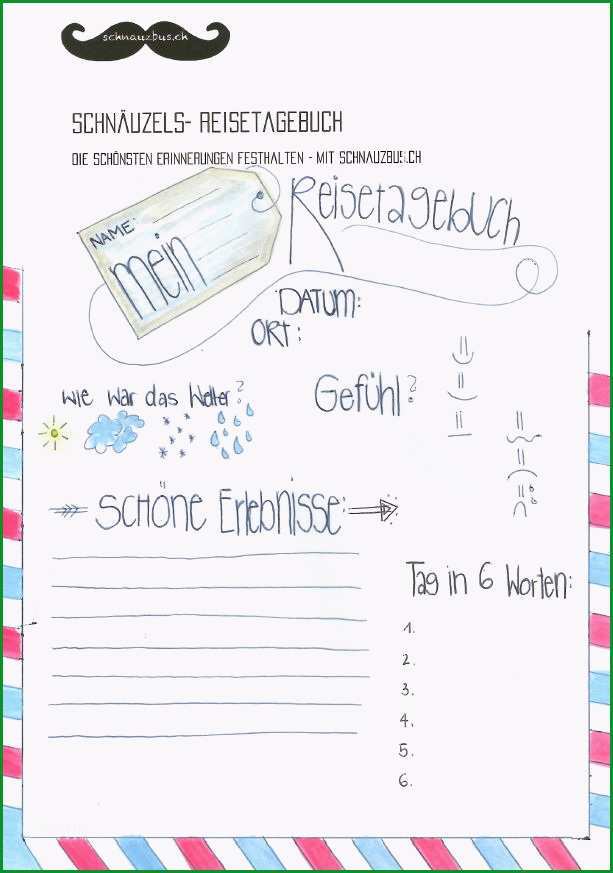 schnauzbus.ch
SCHNÄUZELS- REISETAGEBUCH
DIE SCHÖNSTEN ERINNERUNGEN FESTHALTEN - MIT SCHNAUZBUS.CH
NAME:
mein
Reisetagebuch
DATUM:
ORT:
wie war das Wetter?
Gefühl?
SCHÖNE Erlebnisse:
Tag in 6 Worten:
1.
2.
3.
4.
5.
6.